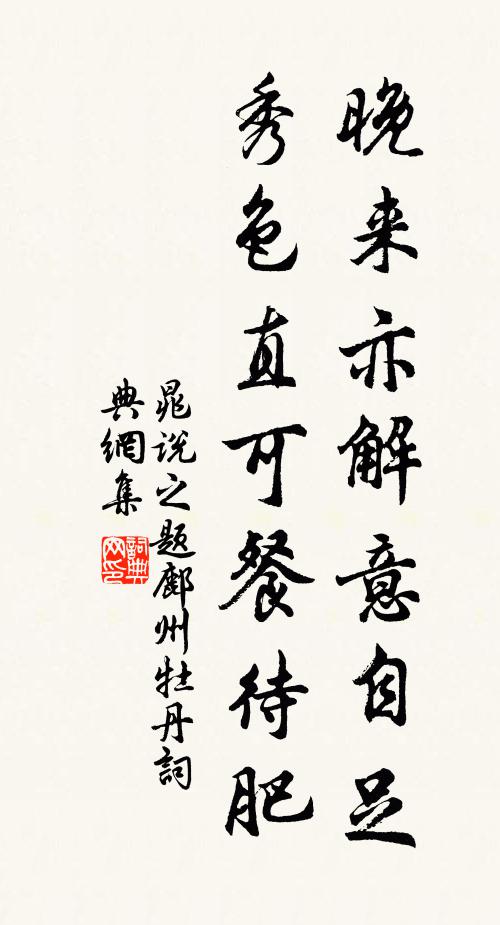 晚来亦解意自足
秀色直可餐待肥
晁说之题鄜州牡丹詞
典網集
詞典
网印